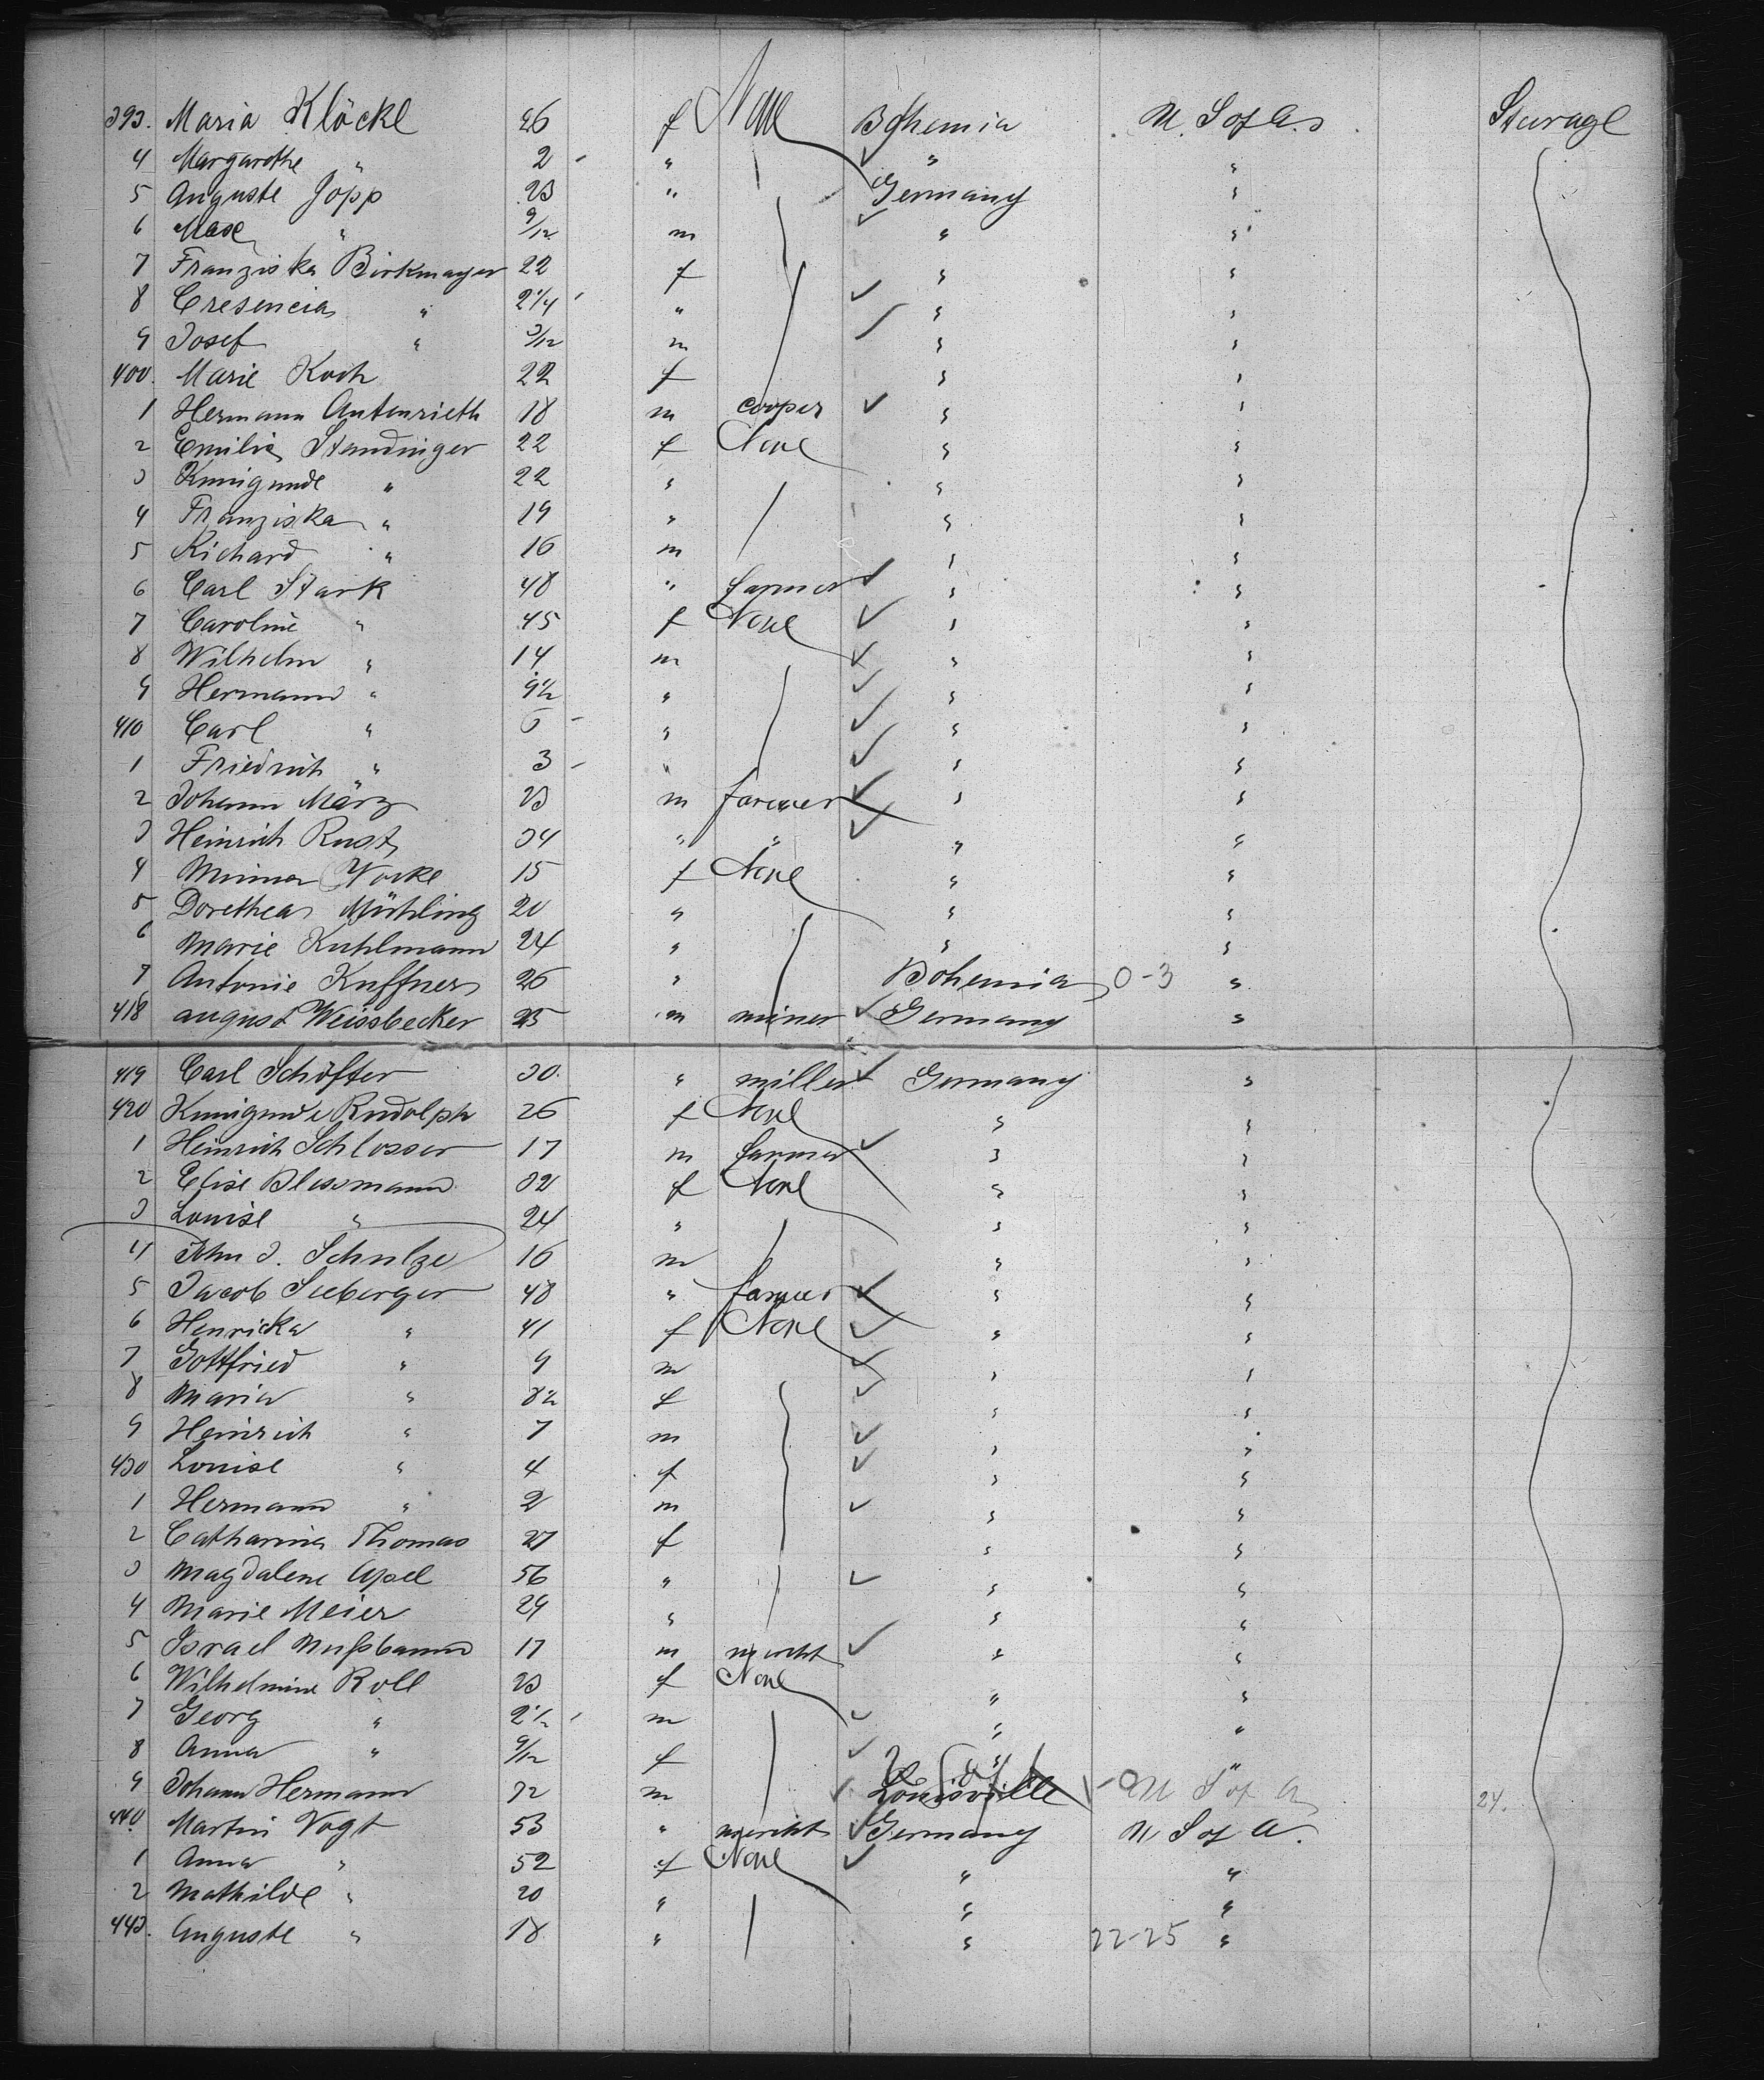 393. Maria Klöckl 26 f None Bohemia U. S of A.s Steerage
4 Margarethe " 2 " " "
5 Auguste Jopp 23 " Germany "
6 Max " 9/12 m " "
7 Franziska Birkmayer 22 f " "
8 Cresencia " 2 1/4 " " "
9 Josef " 3/12 m " "
400. Marie Koch 22 f " "
1 Hermann Autenrieth 18 m cooper " "
2 Emilie Standinger 22 f None " "
3 Kunigunde " 22 " " "
4 Franziska " 19 " " "
5 Richard " 16 m " "
6 Carl Stark 48 " farmer " "
7 Caroline " 45 f None " "
8 Wilhelm " 14 m " "
9 Hermann " 9 1/2 " " "
410 Carl " 6 " " "
1 Friedrich " 3 " " "
2 Johann März 23 m farmer " "
3 Heinrich Rust 34 " " " "
4 Minna Worke 15 f None " "
5 Dorethea Möhling 20 " " "
6 Marie Kuhlmann 24 " " "
7 Antonie Kuffner 26 " Bohemia 0-3 "
418 August Weissbecker 25 m miner Germany "
419 Carl Schöffer 30. " miller Germany "
420 Kunigunde Rudolph 26 f None " "
1 Heinrich Schlosser 17 m farmer " "
2 Elise Blessmann 32 f None " "
3 Louise " 24 " " "
4 John J. Schulze 16 m " "
5 Jacob Seeberger 48 " farmer " "
6 Henricka " 41 f None " "
7 Gottfried " 9 m " "
8 Maria " 8 1/2 f " "
9 Heinrich " 7 m " "
430 Louise " 4 f " "
1 Hermann " 2 m " "
2 Catharina Thomas 27 f " "
3 Magdalene Apel 56 " " "
4 Marie Meier 29 " " "
5 Israel Nußbaum 17 m mercht " "
6 Wilhelmine Roll 23 f None " "
7 Georg " 2 1/2 m " "
8 Anna " 9/12 f " "
9 Johann Hermann 32 m Louisville U S of A 24.
440. Martin Vogt 53 " mercht Germany U S of A.
1 Anna " 52 f None " "
2 Mathilde " 20 " " "
443. Auguste " 18 " " 22-25 "